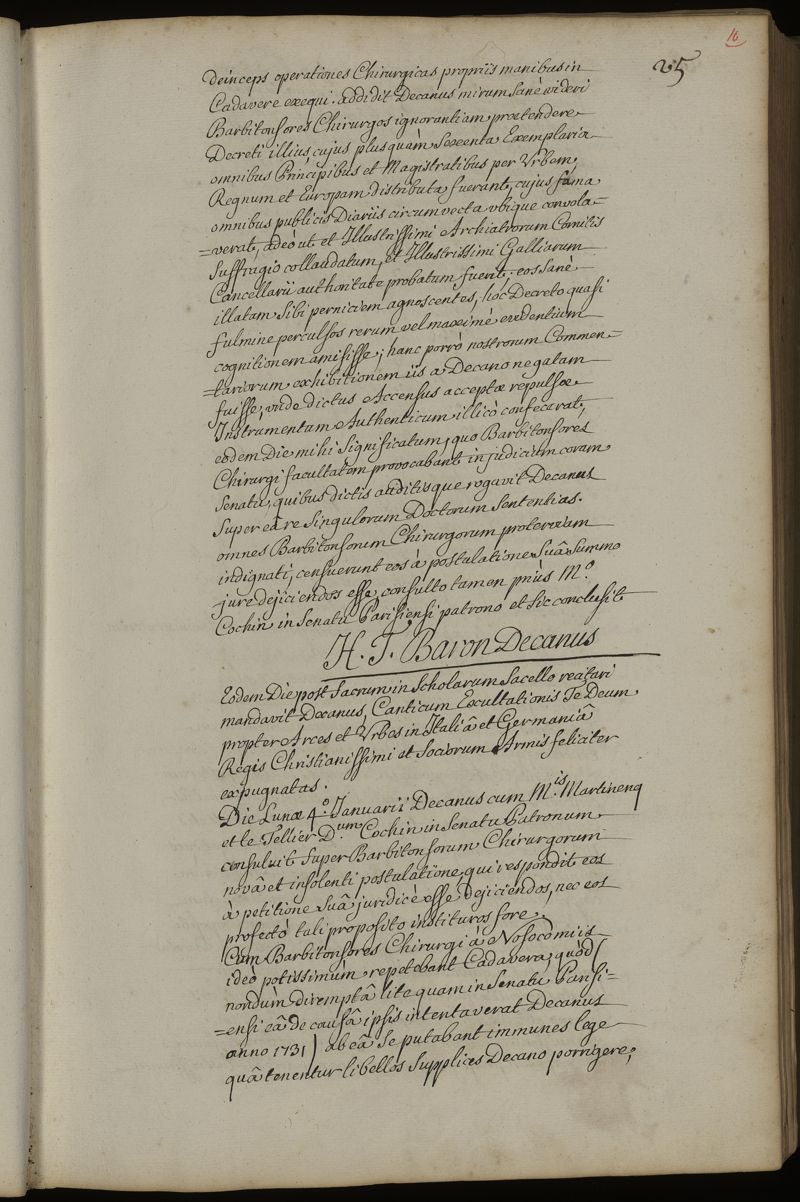 16
25
deinceps operationes Chirurgicas propriis manibus in
Cadavere exequi. addidit Decanus mirum sanè videri
Barbitonsores Chirurgos ignorantiam prætendere
Decreti illius, cujus plusquàm sexcenta Exemplaria
omnibus Principibus et Magistratibus per Urbem,
Regnum et Europam distributa fuerant, cujus fama
omnibus publicis Diariis circumvecta ubique convola=
=verat, adeò ut et Illustrissimi Archiatrorum Comitis
suffragio collaudatum, et Illustrissimi Galliarum
Cancellarii authoritate probatum fuerit; eos sanè
illatam sibi perniciem agnoscentes, hoc Decreto quasi
fulmine perculsos rerum vel maximè evidentium
cognitionem amisisse; hanc porrò nostrorum Commen=
=tariorum exhibitionem iis a Decano negatam
fuisse, unde dictus Accensus acceptæ repulsæ
Instrumentum Authenticum illicò confecerat,
eodem Die mihi significatum, quo Barbitonsores
Chirurgi facultatem provocabant in judicium coram
Senatu, quibus dictis auditisque rogavit Decanus
super eâ re singulorum Doctorum sententias.
omnes Barbitonsorum Chirurgorum proterviam
indignati, censuerunt eos à postulatione suâ summo
jure dejiciendos esse, consulto tamen priùs M.o
Cochin in Senatu Parisiensi patrono et sic conclusit
H. T. Baron Decanus
Eodem Die post sacrum in Scholarum Sacello recitari
mandavit Decanus, Canticum Exultationis Te Deum
propter Arces et Urbes in Italiâ et Germaniâ
Regis Christianissimi et Sociorum Armis feliciter
expugnatas.
Die Lunæ 4.o Januarii Decanus cum M.is Martinenq
et le Tellier D.um Cochin in Senatu Patronum
consuluit super Barbitonsorum Chirurgorum
novâ et insolenti postulatione, qui respondit eos
à petitione suâ juridicè esse dejiciendos, nec eos
profectò tali proposito instituros fore.
Cùm Barbitonsores Chirurgi à Nosocomiis
ideò potissimùm repetebant Cadavera, quòd (
nondùm diremptâ lite quam in Senatu Parisi=
=ensi eâ de causâ ipsis intentaverat Decanus
anno 1731) ab eâ se putabant immunes lege
quâ tenentur libellos supplices Decano porrigere,